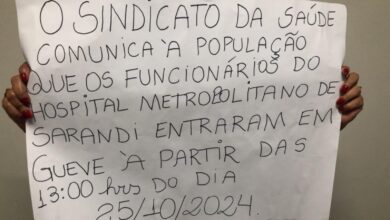 O SINDICATO DA SAÚDE
COMUNICA À POPULAÇÃO
QUE OS FUNCIONÁRIOS DO
HOSPITAL METROPOLITANO DE
SARANDI ENTRARAM EM
GUEVE À PARTIR DAS
13:00 hrs DO DIA
25/10/2024.